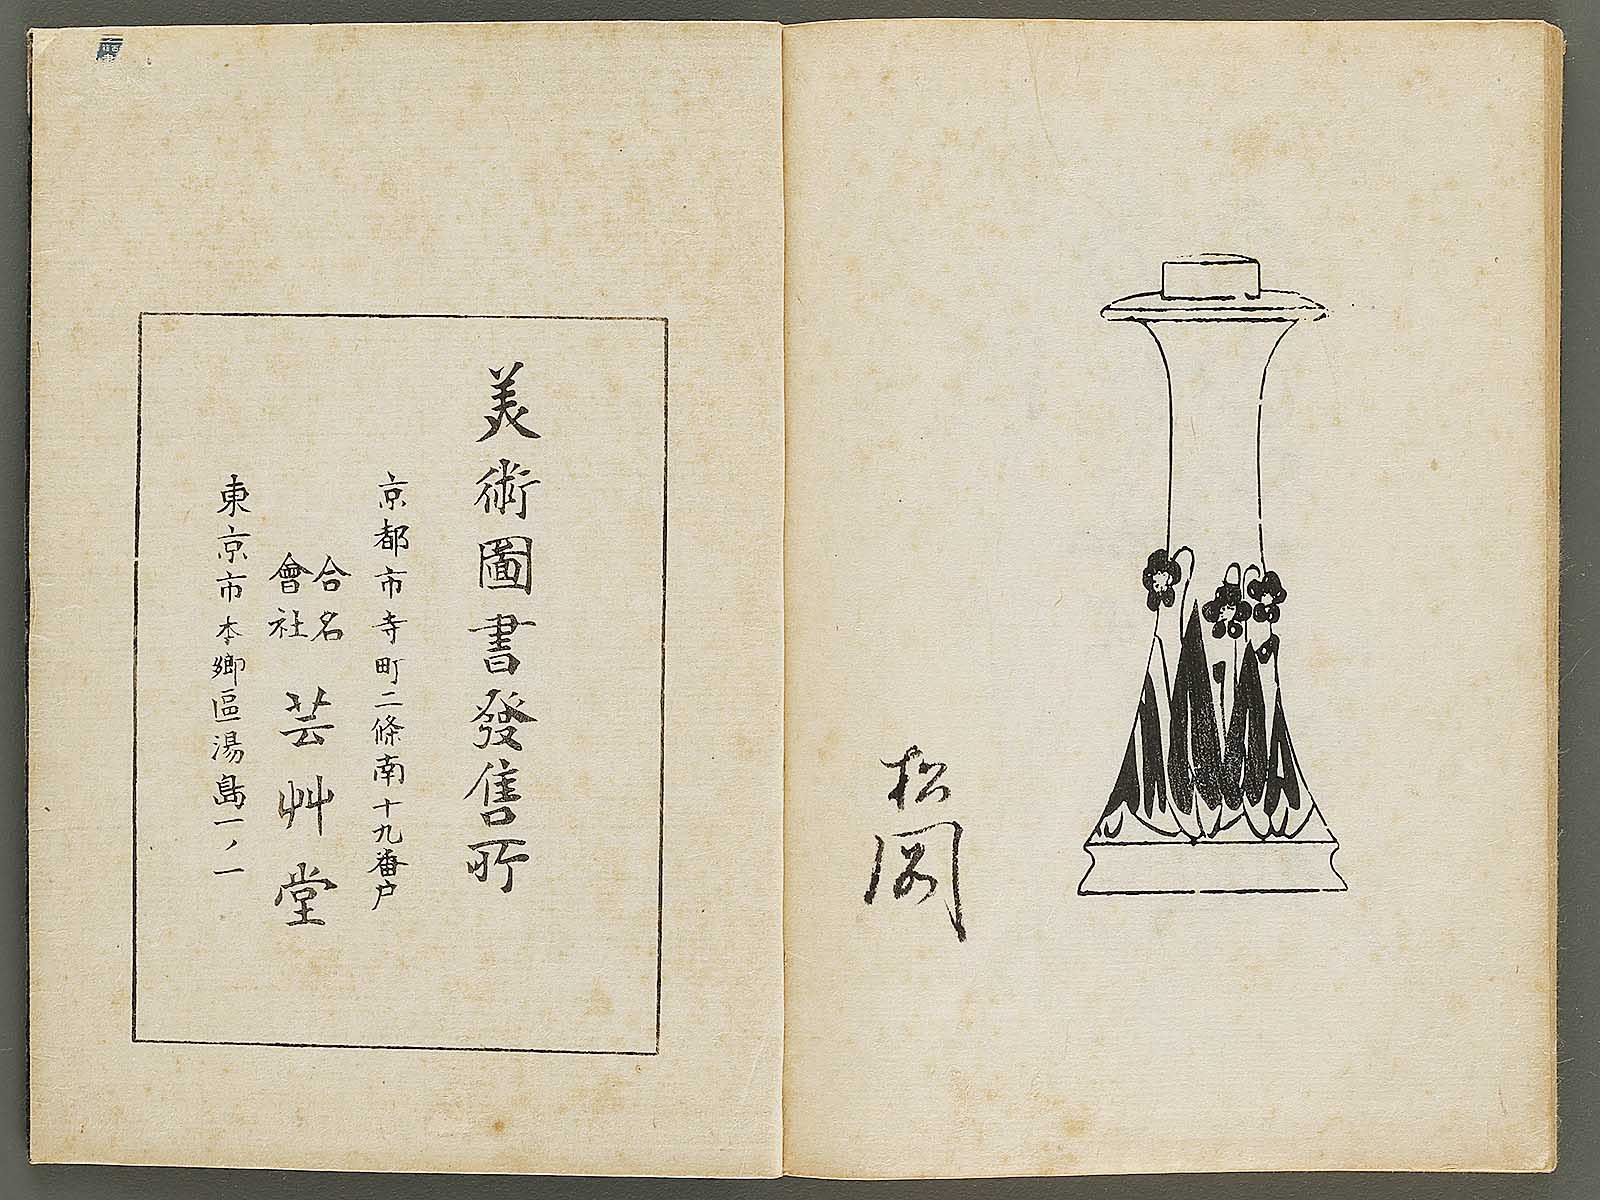 松
美術圖書發售所
京都市寺町二條南十九番戸
合名會社 芸艸堂
東京市本郷區湯島一ノ一